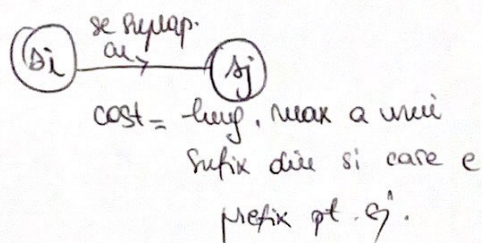 se suprap.
cu
si sj
cost = -lung. max a unui
sufix din si care e
prefix pt. sj.